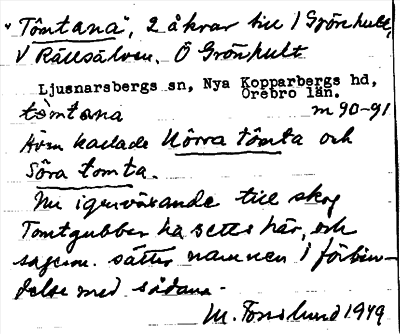 "Tomtana", 2 åkrar till 1 Grönhult,
V Rällsälven. Ö Grönhult
Ljusnarsbergs sn, Nya Kopparbergs hd,
Örebro län.
tòmtana m 90-91
Även kallade Norra tomta och
Södra tomta.
Nu igenväxande till skog
Tomtgubbar ha setts här, och
sägen. sätter namnen i förbin-
delse med sådana.
M. Törnlund 1949